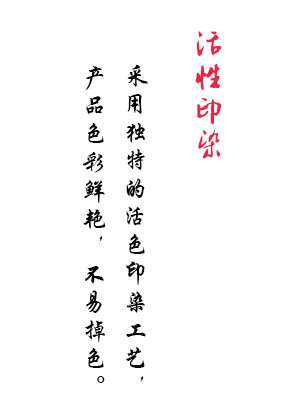 活性印染
采用独特的活色印染工艺，
产品色彩鲜艳，不易掉色。